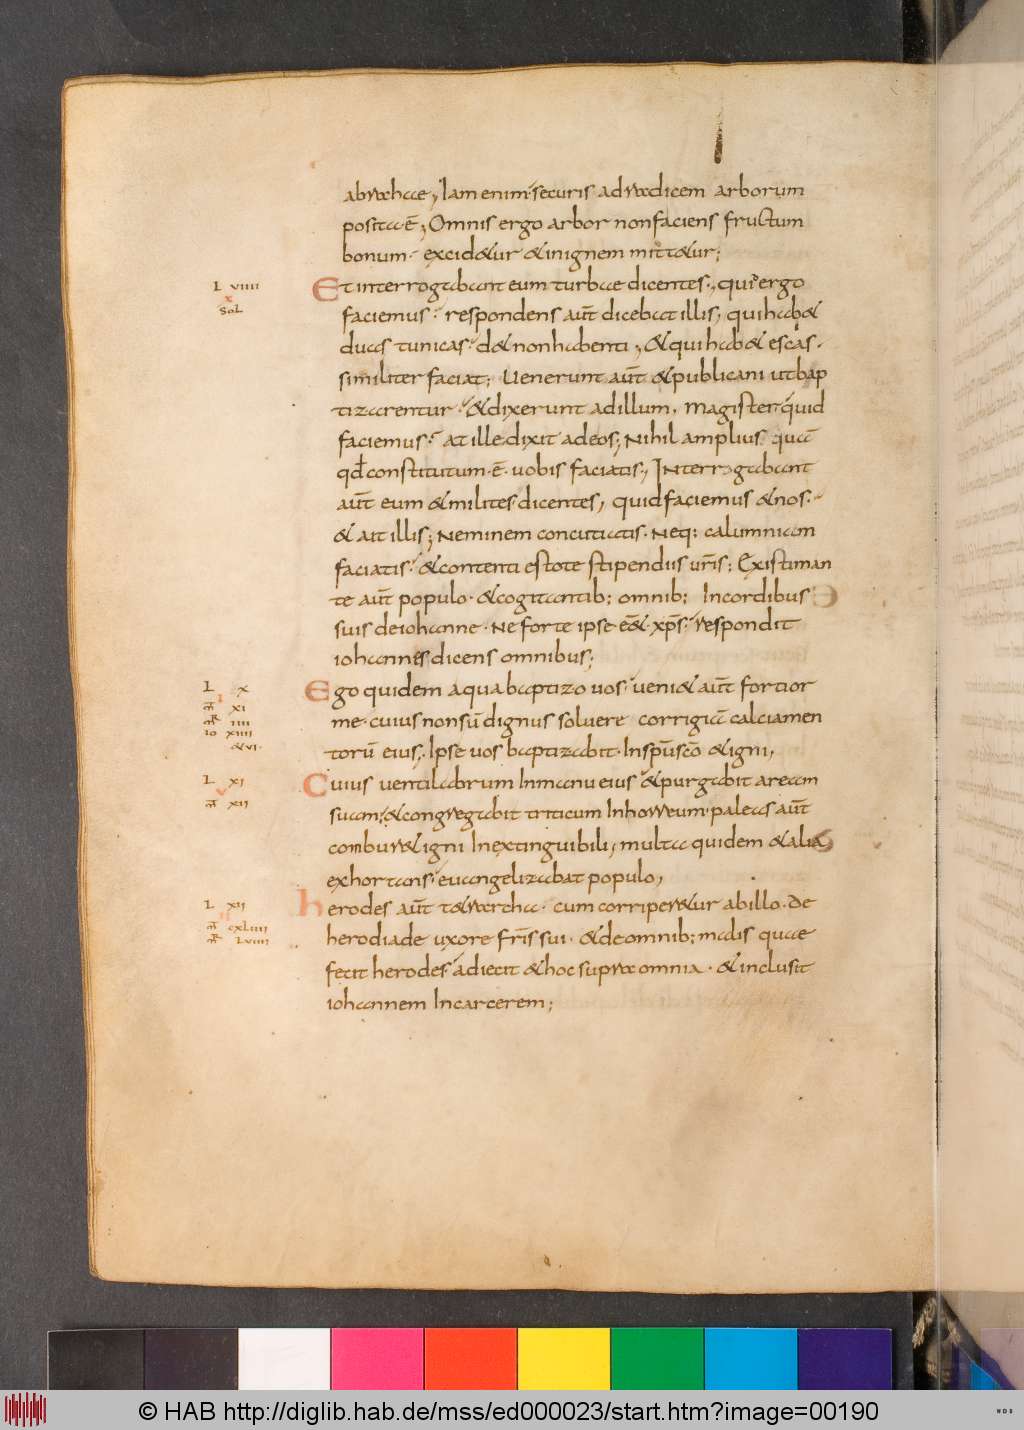 abrahae, Iam enim securis ad radicem arborum
posita ē; Omnis ergo arbor non faciens fructum
bonum excid&ur & in ignem mitt&ur;
L VIIII
X
SOL
Et interrogabant eum turbae dicentes, quid ergo
faciemus. respondens aūt dicebat illis, qui hab&
duas tunicas d& non habenti, & qui hab& escas.
similiter faciat; Uenerunt aūt & publicani ut bap
tizarentur & dixerunt ad illum. Magister quid
faciemus. at ille dixit ad eos; Nihil amplius quā
qđ constitutum ē uobis faciatis, INterrogabant
aūt eum & milites dicentes, quid faciemus & nos.
& ait illis; Neminem concutiatis. Neq; calumniam
faciatis & contenti estote stipendiis ur̄is; Existiman
te aūt populo & cogitantib; omnib; In cordibus
suis de iohanne. Ne forte ipse ēē& xp̄s. respondit
iohannes dicens omnibus;
L X
I
m̄ XI
mr̄ IIII
IO XIIII
& VI
Ego quidem aqua baptizo uos. ueni& aūt fortior
me cuius non sū dignus soluere corrigiā calciamen
torū eius; Ipse uos baptizabit In sp̄u sc̄o & igni,
L XI
V
m̄ XII
Cuius uentilabrum In manu eius & purgabit aream
suam; & congregabit triticum In horreum. paleas aūt
combur& igni Inextinguibili, multa quidem & alia
exhortans. euangelizabat populo,
L XII
II
m̄ CXLIIII
mr̄ LVIIII
herodes aūt t&rarcha. cum corriper&ur ab illo. de
herodiade uxore fr̄is sui. & de omnib; malis quae
fecit herodes adiecit & hoc supra omnia. & inclusit
iohannem In carcerem;
© HAB http://diglib.hab.de/mss/ed000023/start.htm?image=00190